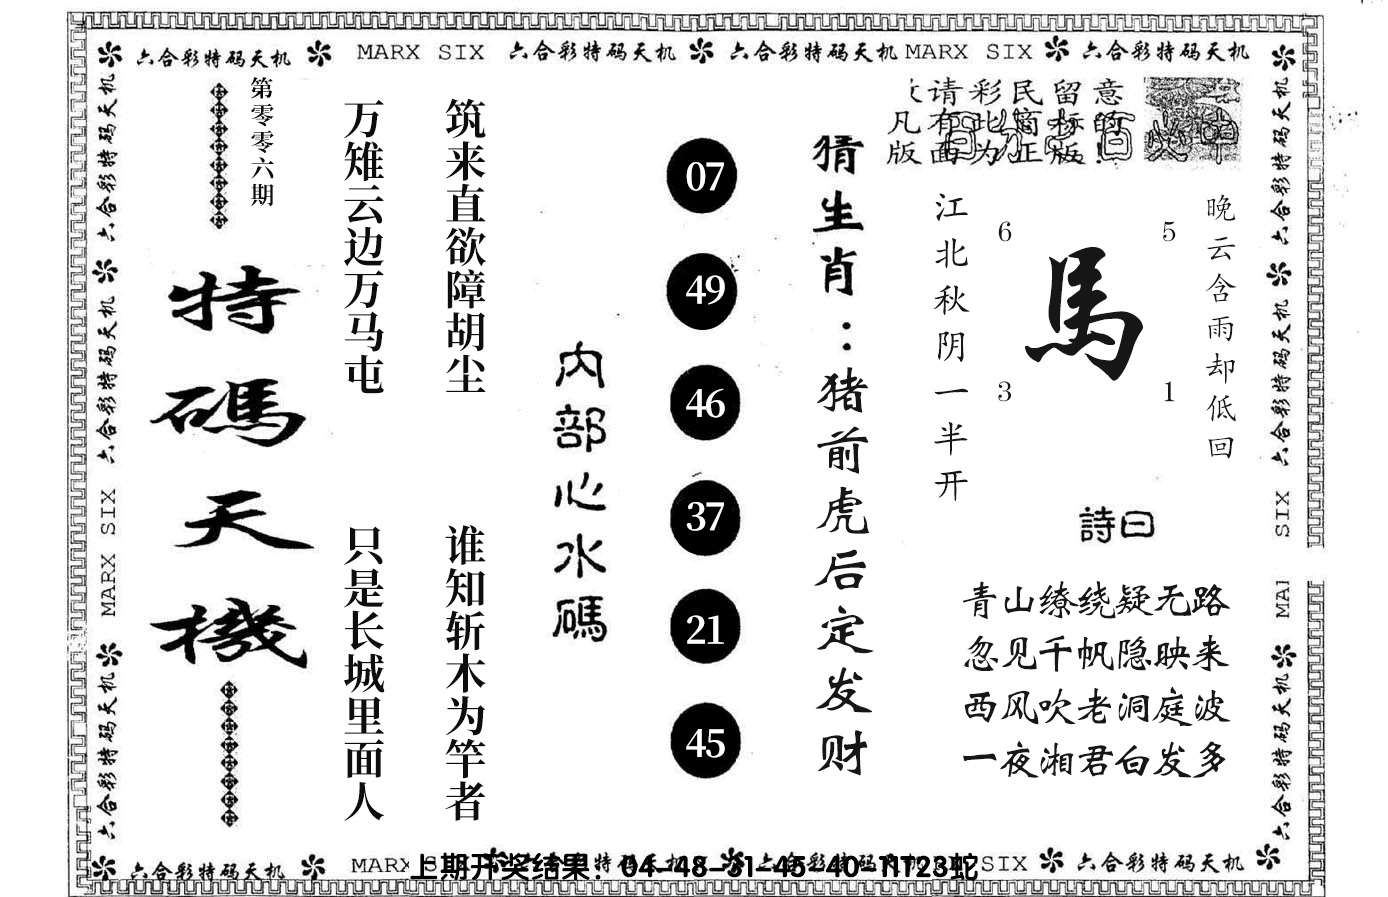 六合彩特码天机 MARX SIX 六合彩特码天机 六合彩特码天机 MARX SIX 六合彩特码天机
六合彩特码天机 六合彩特码天机 MARX SIX 六合彩特码天机
第零零六期
特碼天機
万雉云边万马屯
只是长城里面人
筑来直欲障胡尘
谁知斩木为竿者
内部心水碼
07
49
46
37
21
45
猜生肖：猪前虎后定发财
请彩民留意
凡有此 标的
版面为正版
江北秋阴一半开
6
5
馬
3
1
晚云含雨却低回
詩曰
青山缭绕疑无路
忽见千帆隐映来
西风吹老洞庭波
一夜湘君白发多
六合彩特码天机 六合彩特码天机 SIX 六合彩特码天机
六合彩特码天机 MARX 特码天机 六合彩特码天机 SIX 六合彩特码天机
上期开奖结果：04-48-31-45-40-11T23蛇